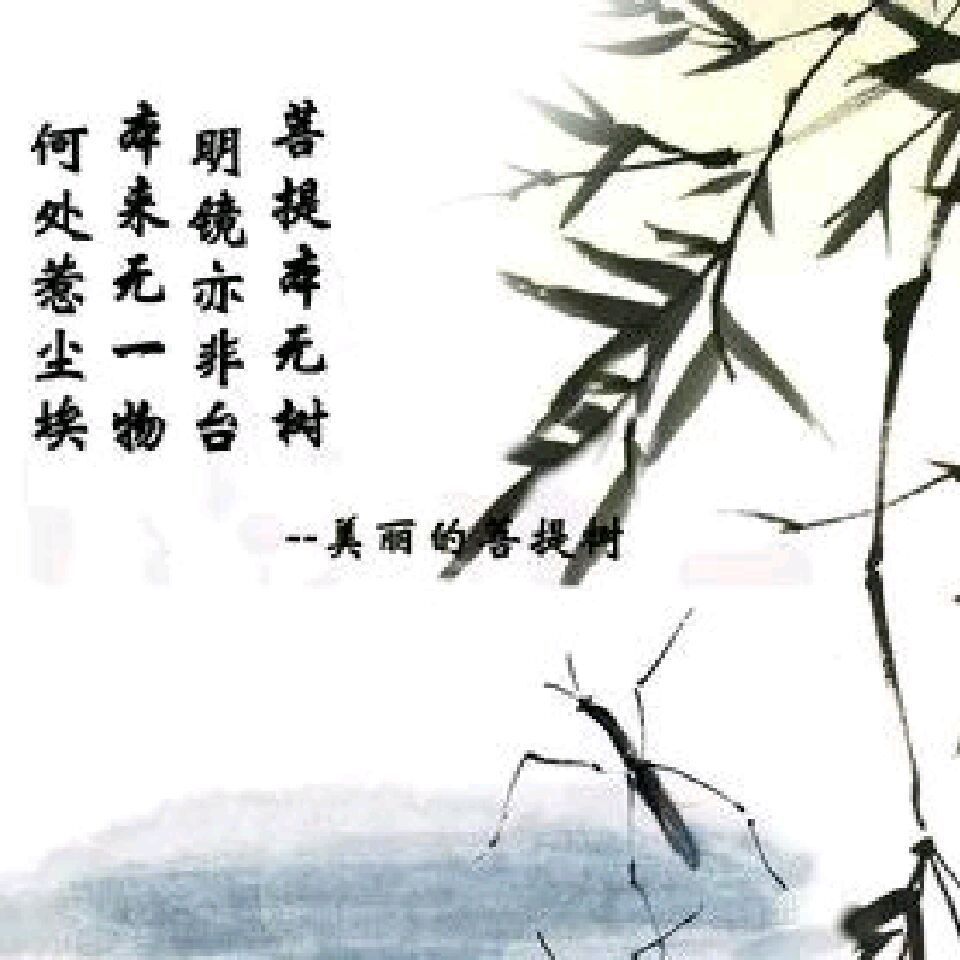 菩提本无树
明镜亦非台
本来无一物
何处惹尘埃
--美丽的菩提树